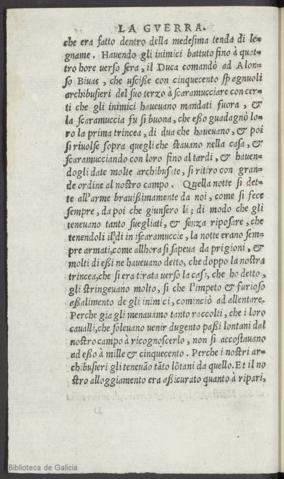 LA GVERRA.
che era fatto dentro della medesima tenda di le-
gname. Hauendo gli inimici battuto fino à quat-
tro hore uerso sera, il Duca comandò ad Alon-
so Biuas, che uscisse con cinquecento spagnuoli
archibusieri del suo terzo à scaramucciare con cer-
ti che gli inimici haueuano mandati fuora, &
la scaramuccia fu si buona, che esso guadagnò lo-
ro la prima trincea, di dua che haueuano, & poi
si riuolse sopra quegli che stauano nella casa, &
scaramucciando con loro fino al tardi, & hauen-
dogli date molte archibusate, si ritiro con gran-
de ordine al nostro campo. Quella notte si det-
te all'arme brauissimamente da noi, come si fece
sempre, da poi che giunsero li; di modo che gli
teneuano tanto suegliati, & senza riposare, che
tenendoli il dì in scaramuccie, la notte erano sem-
pre armati, come allhora si sapeua da prigioni, &
molti di essi ne haueuano detto, che doppo la nostra
trincea, che si era tirata uerso la casa, che ho detto,
gli stringeuano molto, si che l'impeto & furioso
assalimento de gli inimici, cominciò ad allentare.
Perche gia gli menauimo tanto raccolti, che i loro
caualli, che soleuano uenir dugento passi lontani dal
nostro campo à ricognoscerlo, non si accostauano
ad esso à mille & cinquecento. Perche i nostri ar-
chibusieri gli teneuão tãto lõtani da quello. Et il no
stro alloggiamento era assicurato quanto à ripari,
Biblioteca de Galicia